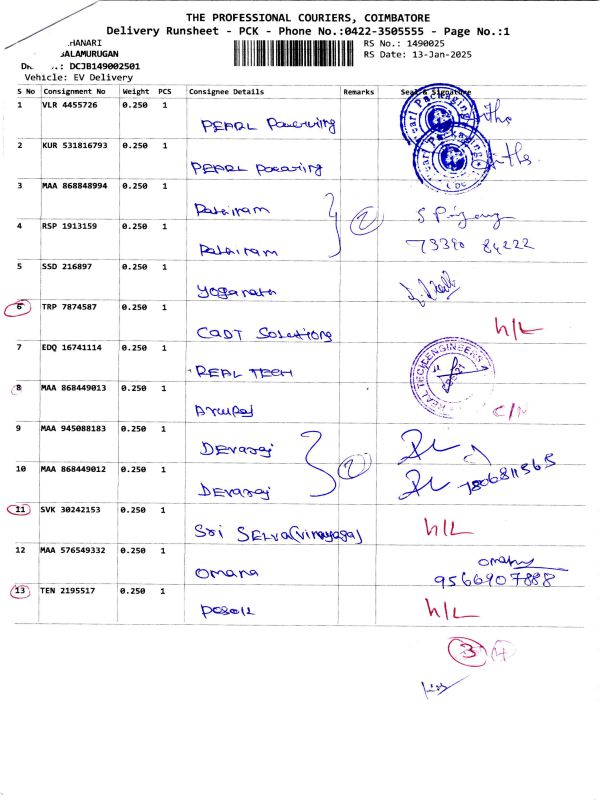 THE PROFESSIONAL COURIERS, COIMBATORE
Delivery Runsheet - PCK - Phone No.:0422-3505555 - Page No.:1
HANARI
BALAMURUGAN
.: DCJB149002501
Vehicle: EV Delivery
RS No.: 1490025
RS Date: 13-Jan-2025
S No Consignment No Weight PCS Consignee Details Remarks Seal & Signature
1 VLR 4455726 0.250 1
PEARL
2 KUR 531816793 0.250 1
PEARL
3 MAA 868848994 0.250 1
4 RSP 1913159 0.250 1
2
73390 84222
5 SSD 216897 0.250 1
Yoganath
6 TRP 7874587 0.250 1
CADT Solutions
h/L
7 EDQ 16741114 0.250 1
REAL TECH
REAL TECH ENGINEERS
8 MAA 868449013 0.250 1
Arulraj
9 MAA 945088183 0.250 1
Devaraj
10 MAA 868449012 0.250 1
Devaraj
2
7806811565
11 SVK 30242153 0.250 1
Sri Selva(vinayaga)
h/L
12 MAA 576549332 0.250 1
Omana
9566907888
13 TEN 2195517 0.250 1
h/L
3 4